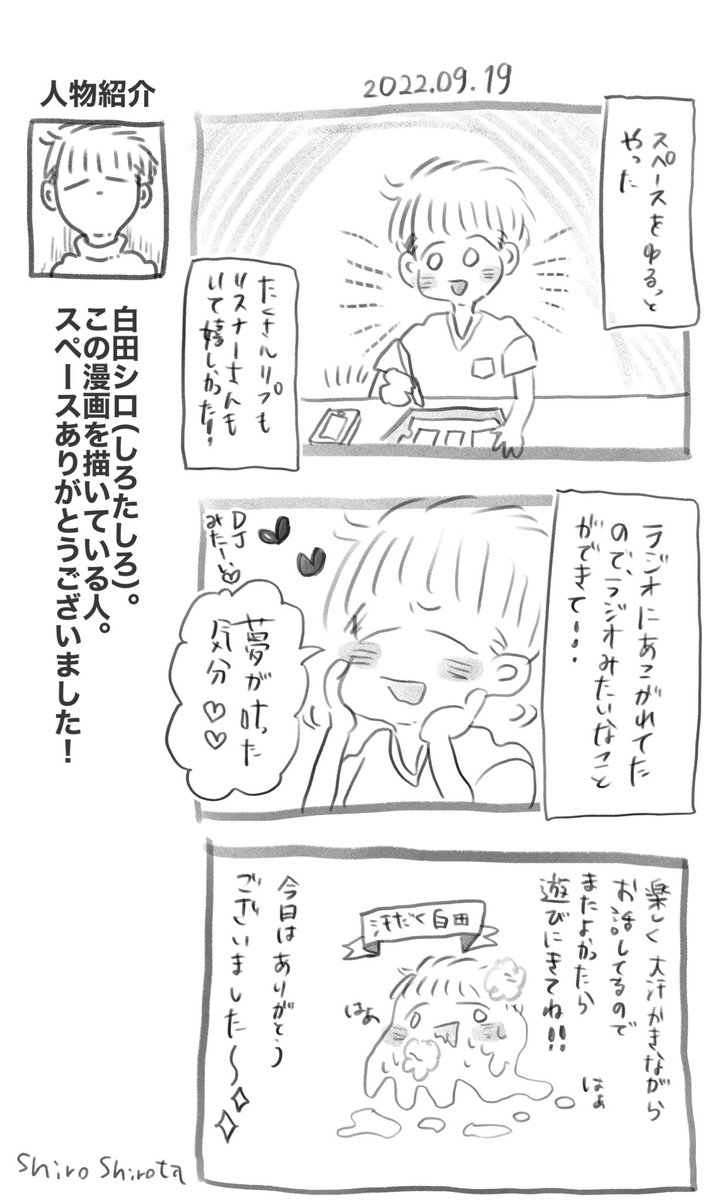 2022.09.19
人物紹介
白田シロ(しろたしろ)。
この漫画を描いている人。
スペースありがとうございました！
スペースをゆるっと
やった
たくさんリプも
リスナーさんも
いて嬉しかった!!
ラジオにあこがれてた
ので、ラジオみたいなこと
ができて…
DJ
みたーい♡
夢が叶った
気分♡♡
楽しく大汗かきながら
お話してるので
またよかったら
遊びにきてね!!
汗だく白田
はぁ
はぁ
今日はありがとう
ございました〜
Shiro Shirota